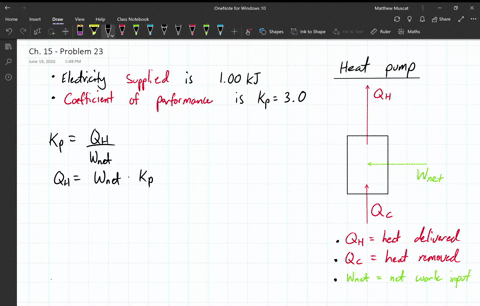 OneNote for Windows 10
Matthew Muscat
File Home Insert Draw View Help Class Notebook
Shapes Ink to Shape Ink to Text Ruler Math
Ch. 15 - Problem 23
• Electricity Supplied is 1.00 kJ
• Coefficient of performance is Kp = 3.0
Kp = QH / Wnet
QH = Wnet · Kp
Heat pump
QH
Wnet
QC
• QH = heat delivered
• QC = heat removed
• Wnet = net work input